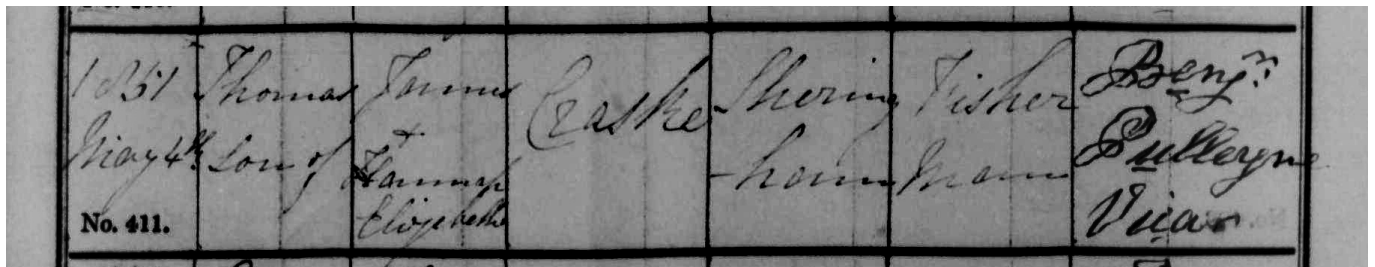 1851
May 4th
No. 411.
Thomas
Son of
James
+
Hannah
Elizabeth
Craske
Shering
-ham
Fisher
Man
Benjn
Pulleyne
Vicar